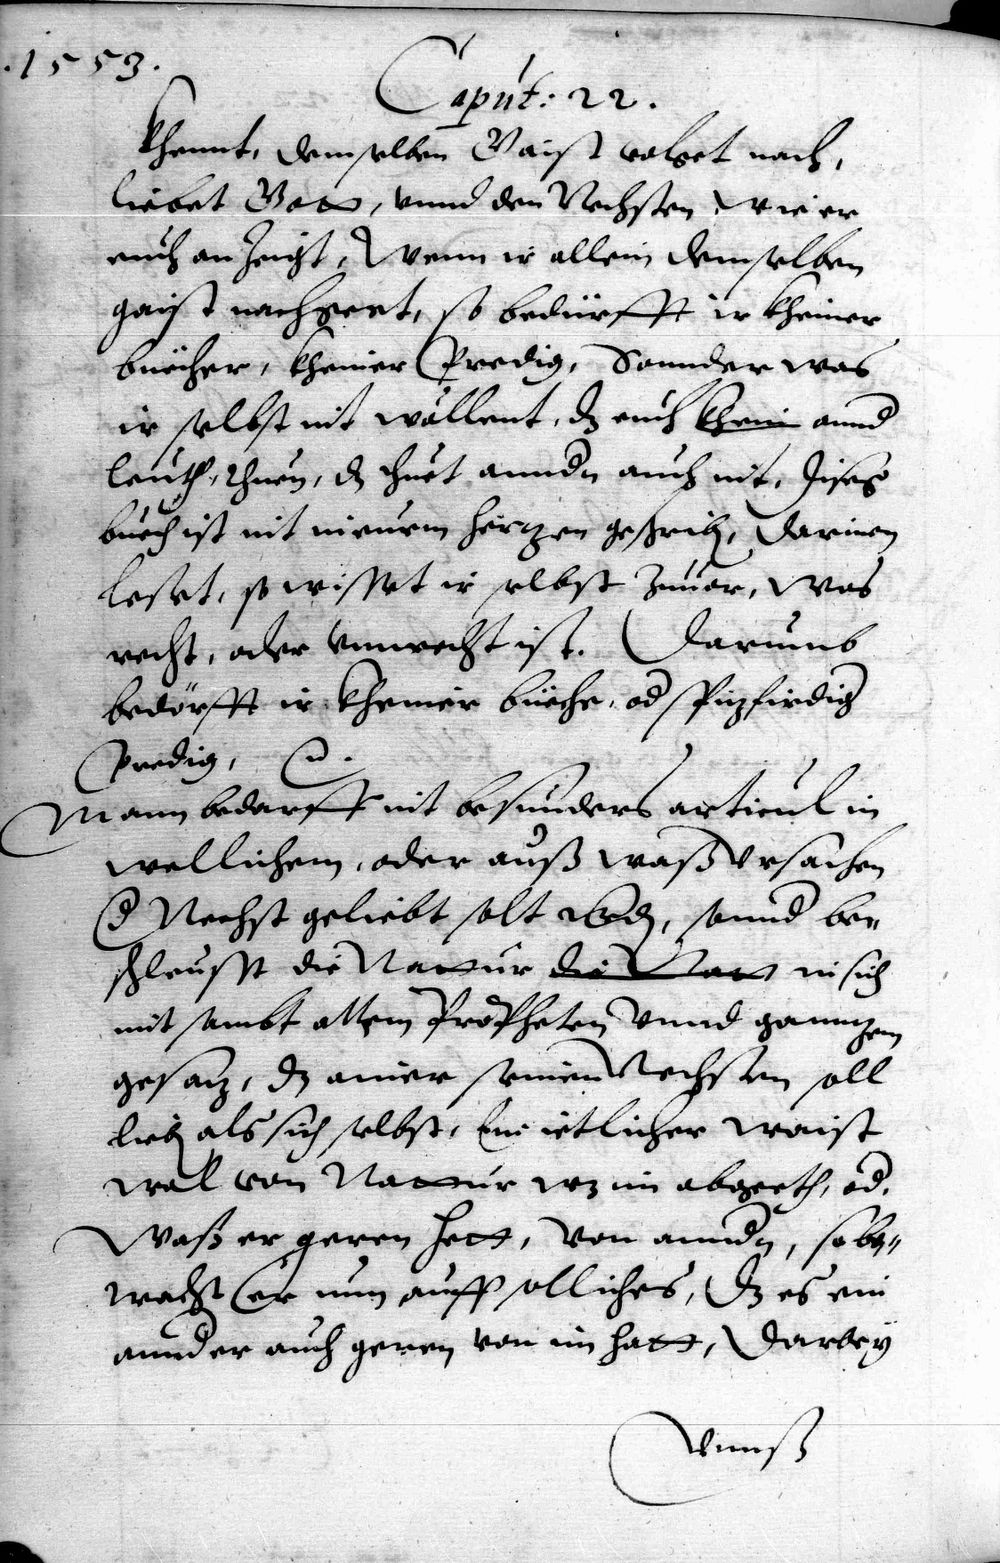 .1553.
Caput: 22.
khennt, demselben Gaist volget nach,
liebet Gott, vnnd den Nechsten, wie er
euch anzeigt, Wenn ir allein demselben
gaist nachgeet, so bedürfft ir kheiner
büecher, kheiner Predig, Sonnder was
ir selbst nit wöllent, dz euch khein annd
leuth, thuen, dz thuet anndn auch nit, Dises
buech ist mit eurem hertzen geschribn, Darinen
leset, so wisset ir selbst zuuor, Was
recht, oder vnnrecht ist. Darumb
bedörfft ir kheiner büeche, od spizfindig
Predig, etc.
Mann bedarff nit besunders articul in
wellichem, oder auß waß vrsachen
d Nechst geliebt solt werdn, sonnd be„
schleusst die Nattur die Natt in sich
mit sambt allen Propheten vnnd ganntzem
gesatz, dz ainer seinen Nechsten soll
liebn als sich selbst, Ein ietlicher waist
wol von Nattur wz im abgeeth, od.
Waß er geren hett, von anndn, so be„
wacht er nun auff solliches, Dz es ein
annder auch geren von im hatt, Darbey
vnnß